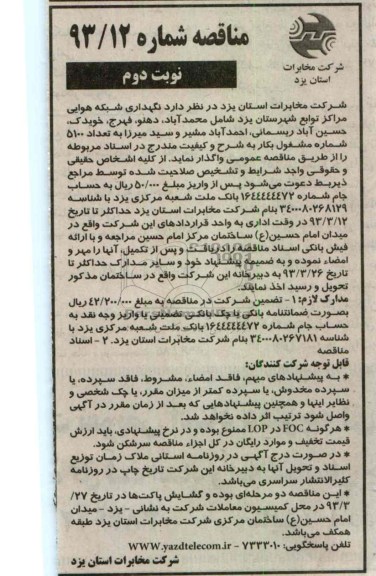 مناقصه شماره ۹۳/۱۲
نوبت دوم
شرکت مخابرات
استان یزد
شرکت مخابرات استان یزد در نظر دارد نگهداری شبکه هوایی
مراکز توابع شهرستان یزد شامل محمدآباد، دهنو، فهرج، خویدک،
حسین آباد ریسمانی، احمدآباد مشیر و سید میرزا به تعداد ۵۱۰۰
شماره مشغول بکار به شرح و کیفیت مندرج در اسناد مربوطه
را از طریق مناقصه عمومی واگذار نماید. از کلیه اشخاص حقیقی
و حقوقی واجد شرایط و تشخیص صلاحیت شده توسط مراجع
ذیربط دعوت می‌شود پس از واریز مبلغ ۵۰/۰۰۰ ریال به حساب
جام شماره ۱۶۴۴۴۴۴۴۷۲ بانک ملت شعبه مرکزی یزد با شناسه
۳۴۰۰۰۸۰۲۶۸۱۲۹ بنام شرکت مخابرات استان یزد حداکثر تا تاریخ
۹۳/۳/۱۲ در وقت اداری به واحد قراردادهای این شرکت واقع در
میدان امام حسین(ع) ساختمان مرکز امام حسین مراجعه و با ارائه
فیش بانکی اسناد مناقصه را دریافت و پس از تکمیل، آنها را مهر و
امضاء نموده و به ضمیمه پیشنهاد خود و سایر مدارک حداکثر تا
تاریخ ۹۳/۳/۲۶ به دبیرخانه این شرکت واقع در ساختمان مذکور
تحویل و رسید اخذ نمایند.
مدارک لازم: ۱- تضمین شرکت در مناقصه به مبلغ ۴۲/۲۰۰/۰۰۰ ریال
بصورت ضمانتنامه بانکی یا چک بانکی تضمینی یا واریز وجه نقد به
حساب جام شماره ۱۶۴۴۴۴۴۴۷۲ بانک ملت شعبه مرکزی یزد با
شناسه ۳۴۰۰۰۸۰۲۶۷۱۸۱ بنام شرکت مخابرات استان یزد. ۲- اسناد
مناقصه
قابل توجه شرکت کنندگان:
* به پیشنهادهای مبهم، فاقد امضاء، مشروط، فاقد سپرده، یا
سپرده مخدوش، یا سپرده کمتر از میزان مقرر، یا چک شخصی و
نظایر اینها و همچنین پیشنهادهایی که بعد از زمان مقرر در آگهی
واصل شود ترتیب اثر داده نخواهد شد.
* هرگونه FOC در LOP ممنوع بوده و در نرخ پیشنهادی، باید ارزش
قیمت تخفیف و موارد رایگان در کل اجزاء مناقصه سرشکن شود.
* در صورت درج آگهی در روزنامه استانی ملاک زمان توزیع
اسناد و تحویل آنها به دبیرخانه این شرکت تاریخ چاپ در روزنامه
کثیرالانتشار سراسری می‌باشد.
* این مناقصه دو مرحله‌ای بوده و گشایش پاکت‌ها در تاریخ ۲۷/
۹۳/۳ در محل کمیسیون معاملات شرکت به نشانی - یزد - میدان
امام حسین(ع) ساختمان مرکزی شرکت مخابرات استان یزد طبقه
همکف می‌باشد.
تلفن پاسخگویی: ۷۲۳۳۰۱۰ - WWW.yazdtelecom.ir
شرکت مخابرات استان یزد